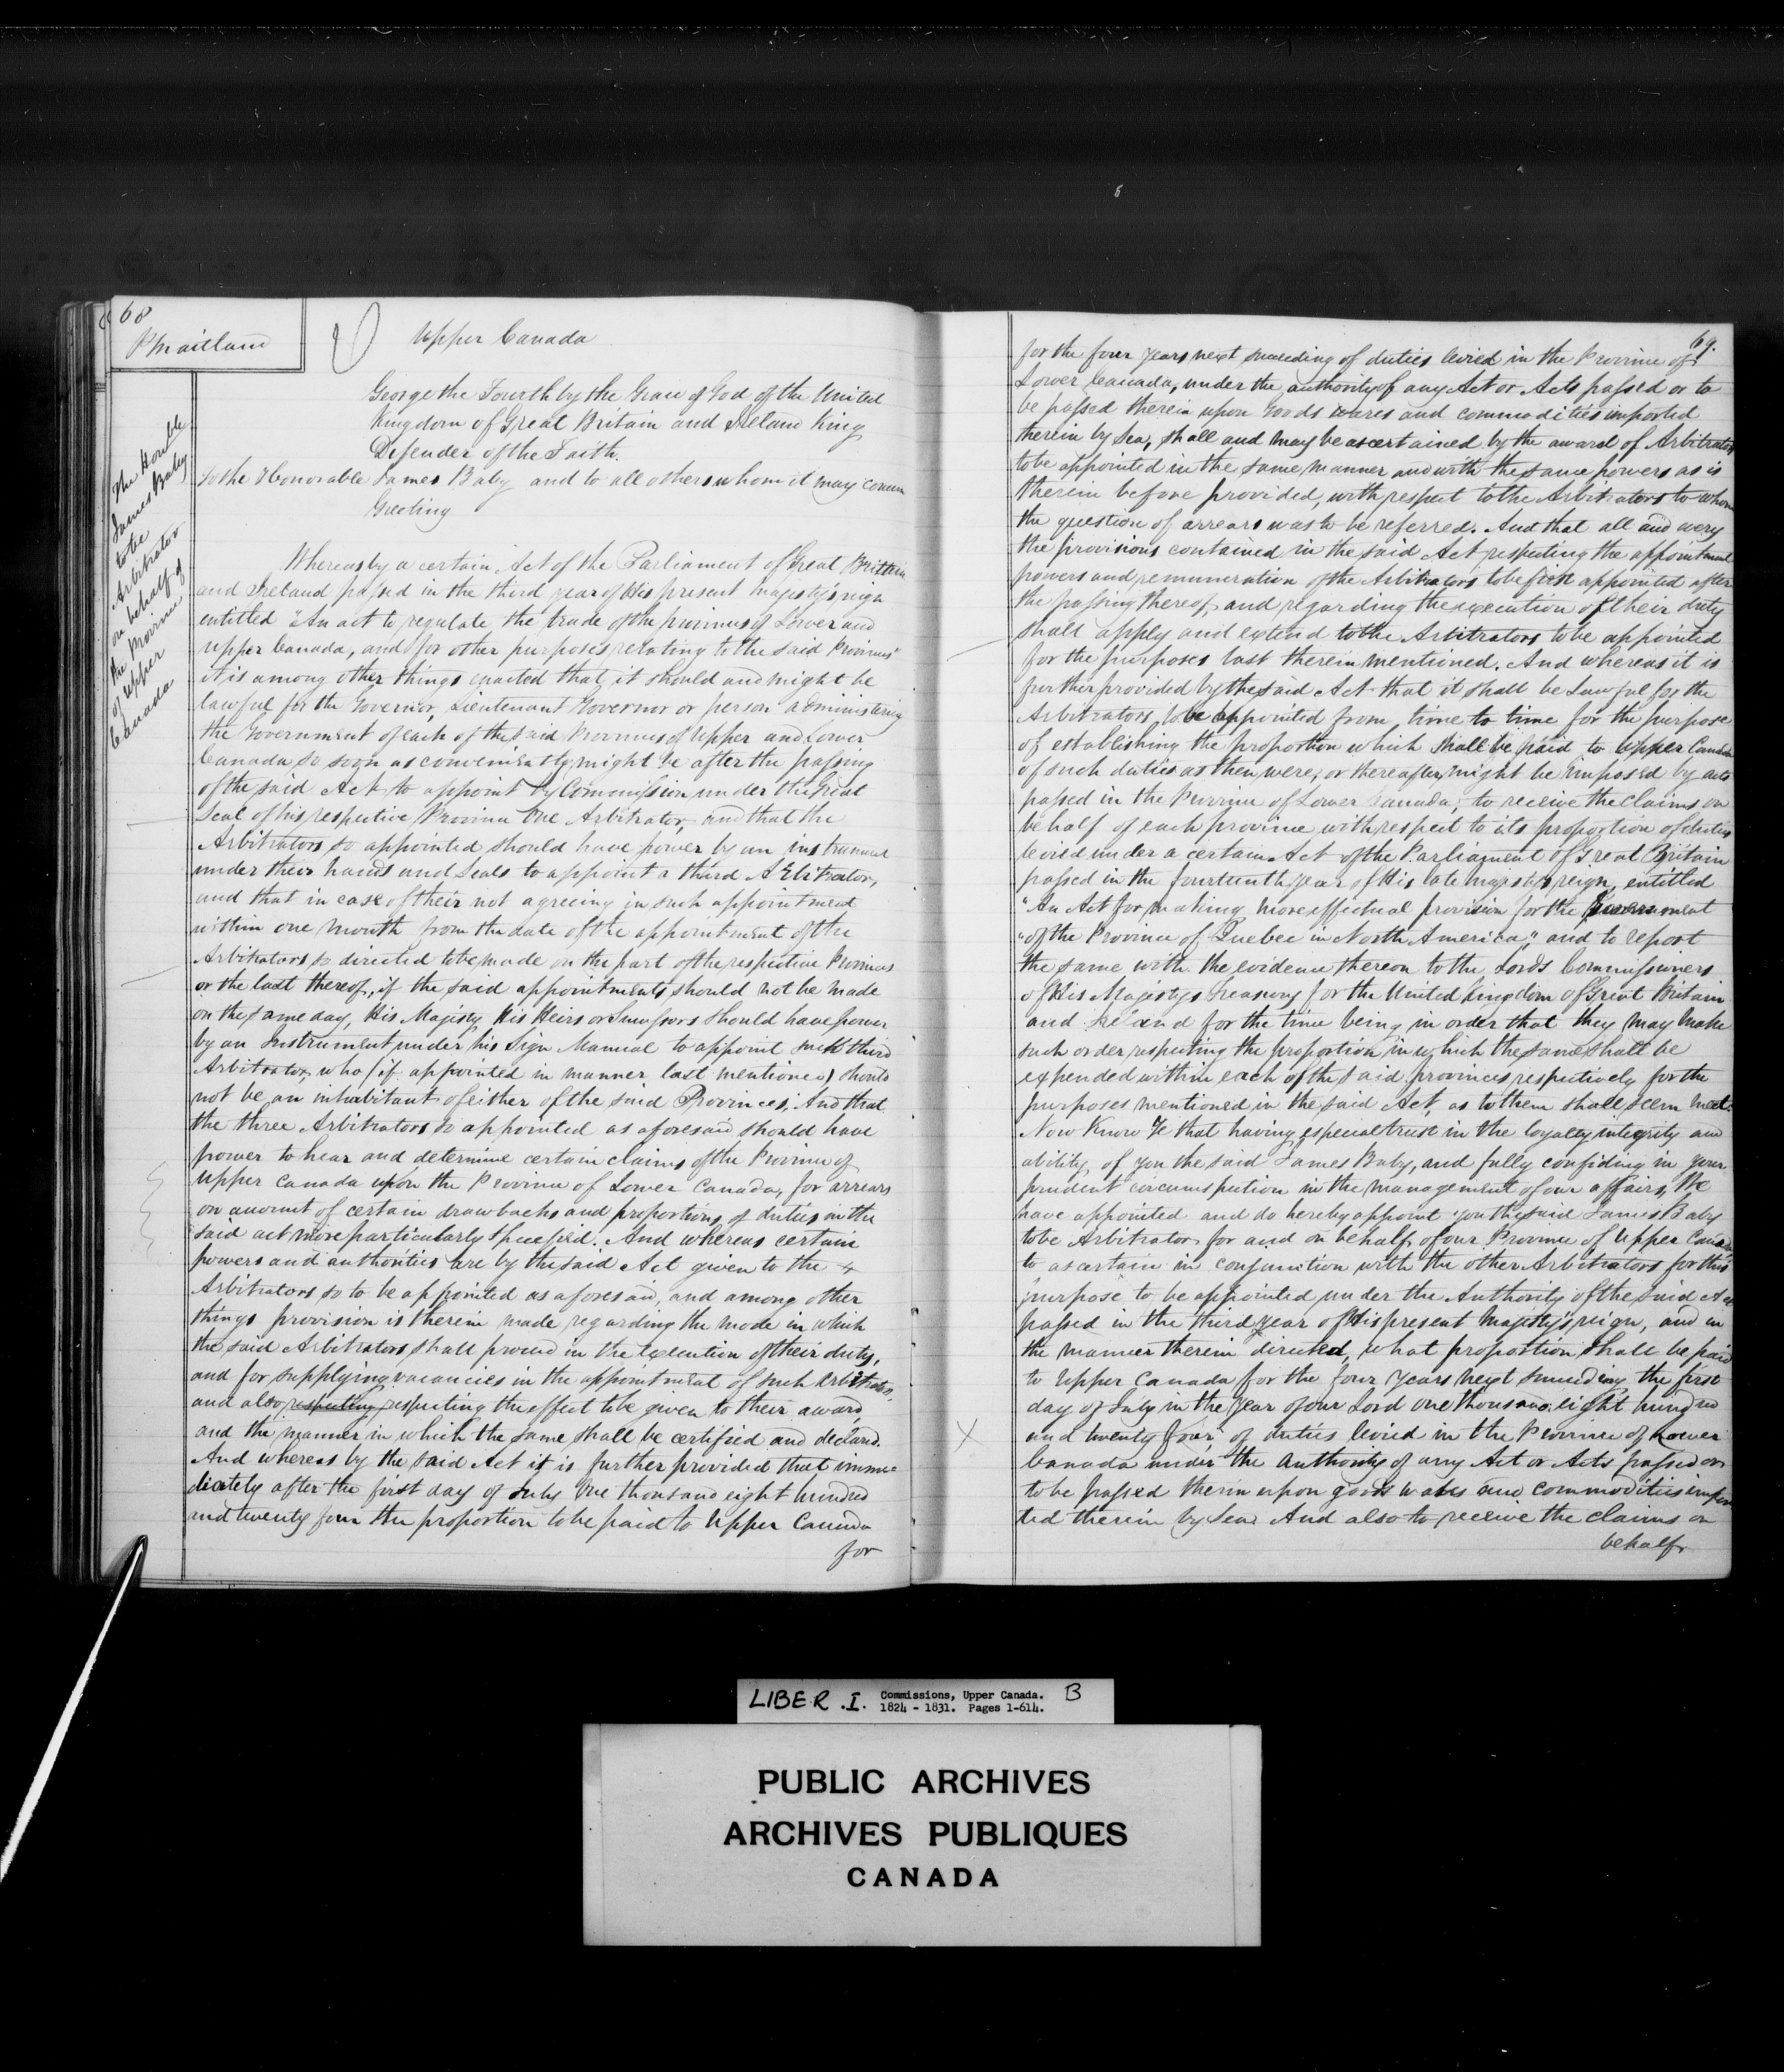 68
P Maitland
Upper Canada
The Honble
James Baby
to be
Arbitrator
on behalf of
the Province
of Upper
Canada
George the Fourth by the Grace of God of the United
Kingdom of Great Britain and Ireland King
Defender of the Faith.
To the Honorable James Baby and to all others whom it may concern
Greeting
Whereas by a certain Act of the Parliament of Great Brittain
and Ireland passed in the third year of His present majesty's reign
entitled "An act to regulate the trade of the provinces of Lower and
Upper Canada, and for other purposes relating to the said Provinces"
it is among other things enacted that it should and might be
lawful for the Governor, Lieutenant Governor or person administering
the Government of each of the said Provinces of Upper and Lower
Canada so soon as conveniently might be after the passing
of the said Act to appoint by Commission under the Great
Seal of his respective Province One Arbitrator, and that the
Arbitrators so appointed should have power by an instrument
under their hands and Seals to appoint a third Arbitrator,
and that in case of their not agreeing in such appointment
within one month from the date of the appointment of the
Arbitrators so directed to be made on the part of the respective Provinces
or the last thereof, if the said appointments should not be made
on the same day, His Majesty His Heirs or Successors should have power
by an Instrument under his Sign Manual to appoint such third
Arbitrator, who (if appointed in manner last mentioned) should
not be an inhabitant of either of the said Provinces; And that
the three Arbitrators so appointed as aforesaid should have
power to hear and determine certain claims of the Province of
Upper Canada upon the Province of Lower Canada, for arrears
on amount of certain drawbacks and proportions of duties in the
said act more particularly Specified. And whereas certain
powers and authorities are by the said Act given to the
Arbitrators so to be appointed as aforesaid, and among other
things provision is therein made regarding the mode in which
the said Arbitrators shall proceed in the Execution of their duty,
and for supplying vacancies in the appointment of such Arbitrators,
and also respecting respecting the effect to be given to their award,
and the manner in which the same shall be certified and declared.
And whereas by the said Act it is further provided that imme-
diately after the first day of July One thousand eight hundred
and twenty four the proportion to be paid to Upper Canada
for
69.
for the four years next succeeding of duties levied in the Province of
Lower Canada, under the authority of any Act or Acts passed or to
be passed therein upon Goods wares and commodities imported
therein by Sea, shall and may be ascertained by the award of Arbitrators
to be appointed in the same manner and with the same powers as is
therein before provided, with respect to the Arbitrators to whom
the question of arrears was to be referred. And that all and every
the provisions contained in the said Act respecting the appointment
powers and remuneration of the Arbitrators to be first appointed after
the passing thereof, and regarding the execution of their duty
shall apply and extend to the Arbitrators to be appointed
for the purposes last therein mentioned. And whereas it is
further provided by the said Act that it shall be Lawful for the
Arbitrators to be appointed from time to time for the purpose
of establishing the proportion which shall be paid to Upper Canada
of such duties as then were, or thereafter might be imposed by acts
passed in the Province of Lower Canada, to receive the claims on
behalf of each province with respect to its proportion of duties
levied under a certain Act of the Parliament of Great Britain
passed in the fourteenth year of His late Majesty's reign, entitled
"An Act for making more effectual provision for the Government
"of the Province of Quebec in North America," and to report
the same with the evidence thereon to the Lords Commissioners
of His Majestys Treasury for the United Kingdom of Great Britain
and Ireland for the time being in order that they may make
such order respecting the proportion in which the same shall be
expended within each of the said provinces respectively for the
purposes mentioned in the said Act, as to them shall seem meet.
Now Know Ye that having especial trust in the loyalty integrity and
ability of you the said James Baby, and fully confiding in your
prudent circumspection in the management of our affairs, We
have appointed and do hereby appoint you the said James Baby
to be Arbitrator for and on behalf of our Province of Upper Canada,
to ascertain in conjunction with the other Arbitrators for this
purpose to be appointed under the Authority of the said Act
passed in the third year of His present Majesty's reign, and in
the manner therein directed, what proportion shall be paid
to Upper Canada for the four years next succeeding the first
day of July in the Year of our Lord one thousand eight hundred
and twenty four, of duties levied in the Province of Lower
Canada under the authority of any Act or Acts passed or
to be passed therein upon goods wares and commodities impor
ted therein by Sea. And also to receive the claims on
behalf
LIBER .I. Commissions, Upper Canada. B
1824 - 1831. Pages 1-614.
PUBLIC ARCHIVES
ARCHIVES PUBLIQUES
CANADA